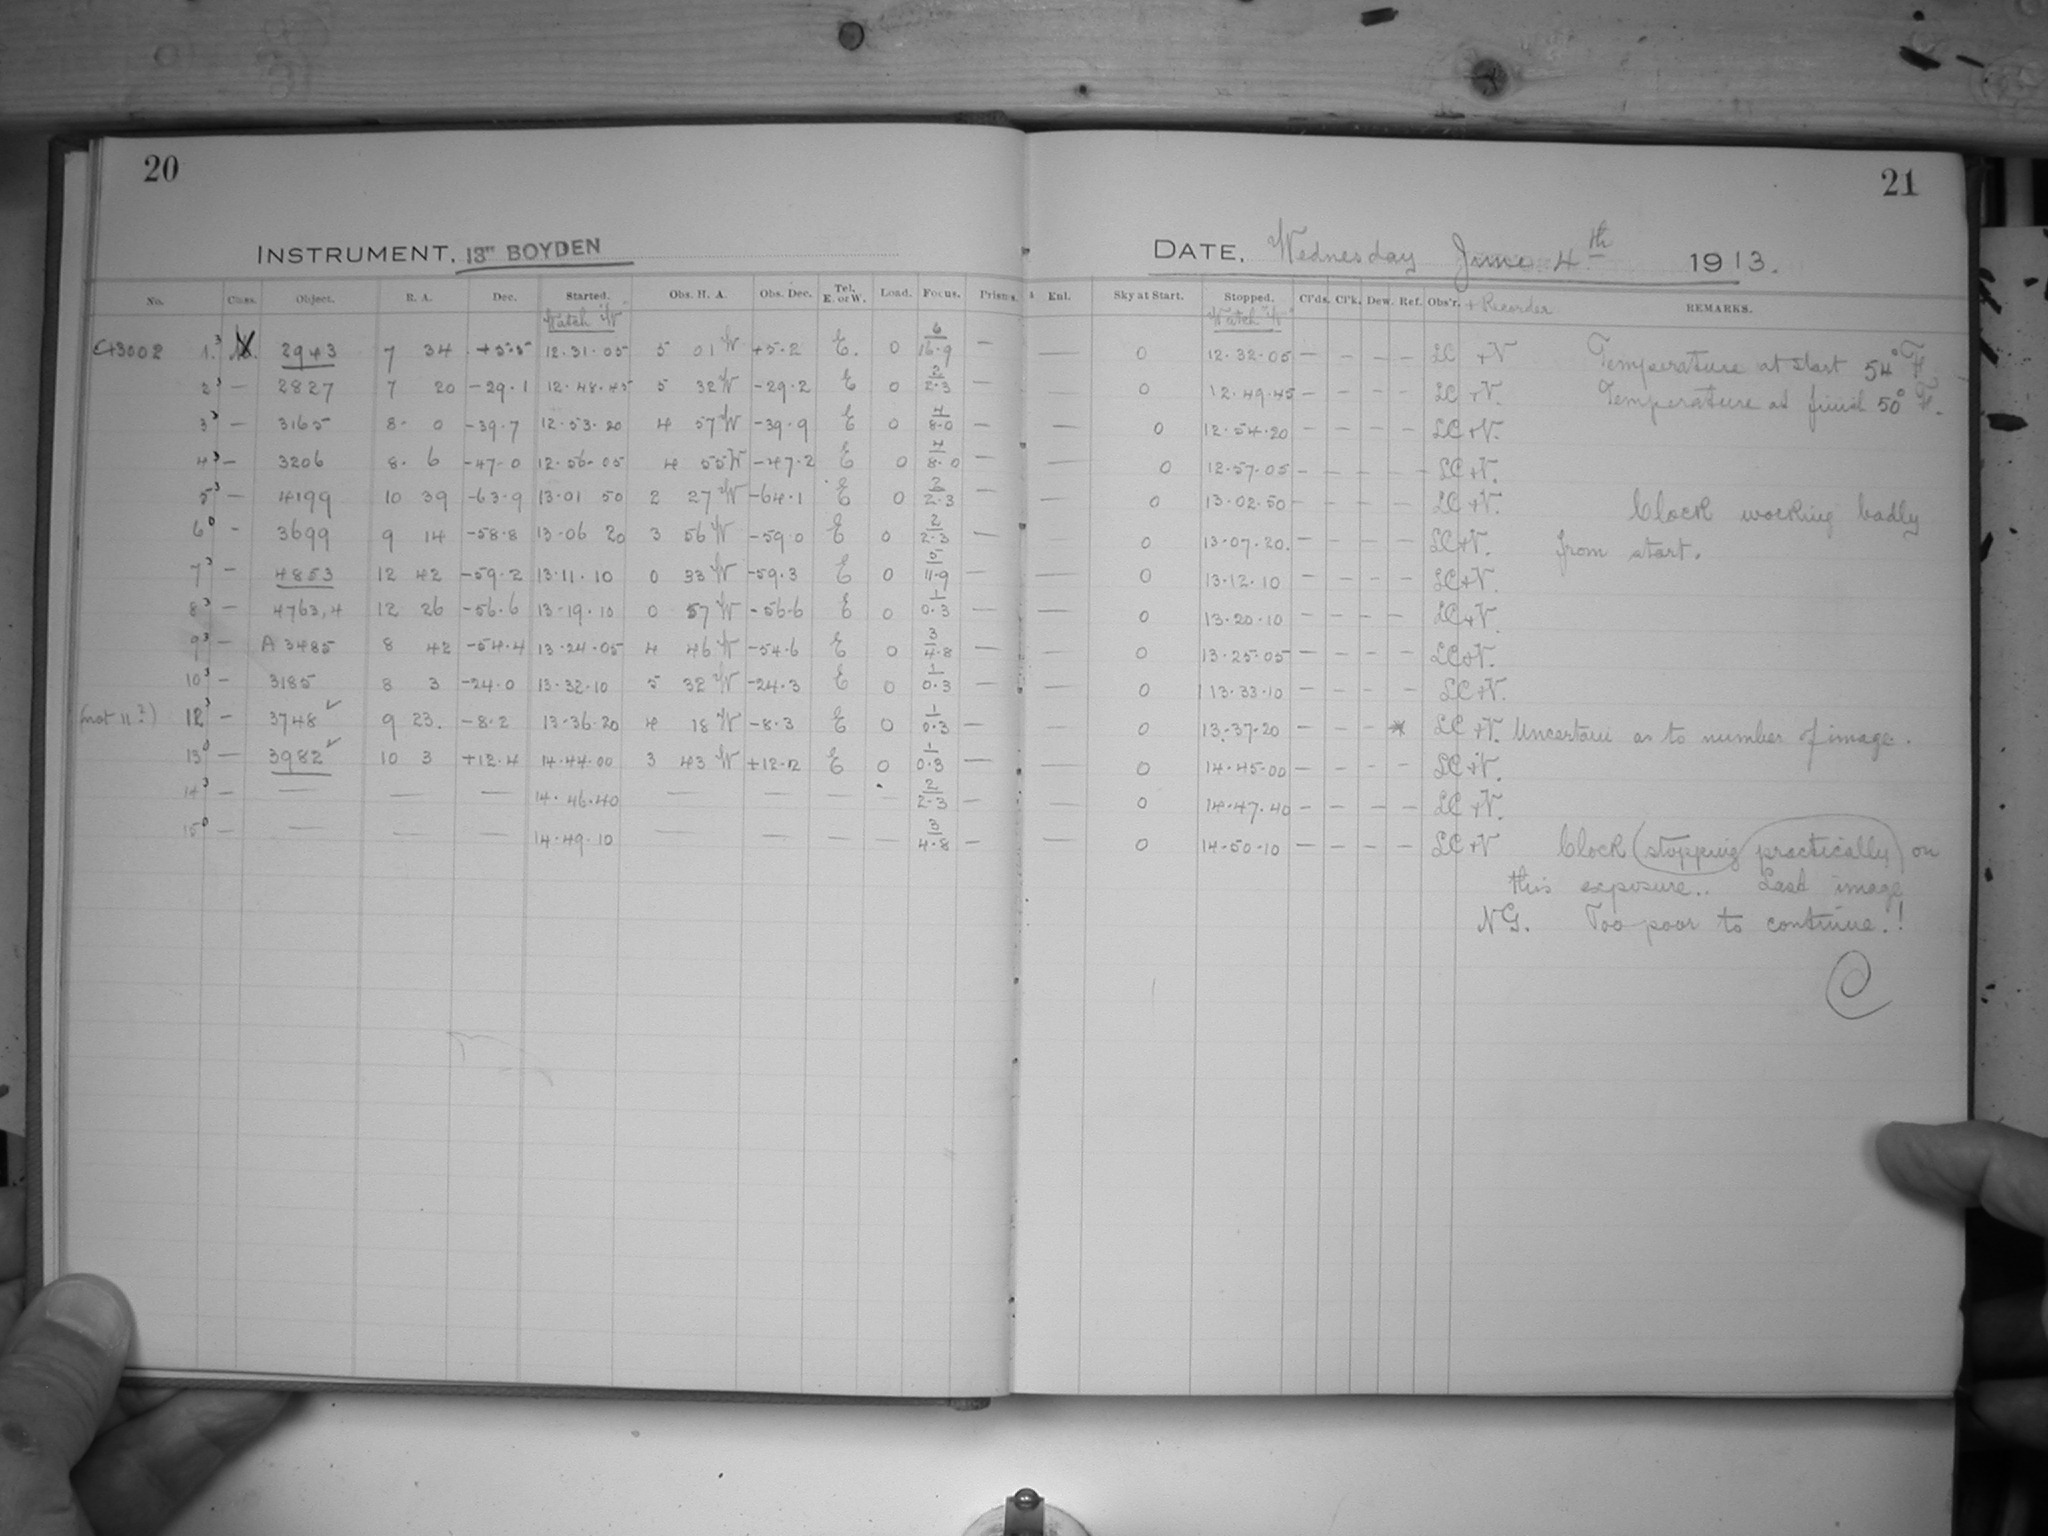 20
INSTRUMENT. 13in BOYDEN
No. Class. Object. R. A. Dec. Started. Obs. H. A. Obs. Dec. Tel. E. or W. Load. Focus. Prisms.
Watch "W"
C43002 1.3 2943 7 34 +5.5 12.31.05 5 01 W +5.2 E. 0 6/16.9 —
2 3 — 2827 7 20 -29.1 12.48.45 5 32 W -29.2 E 0 2/2.3 —
3 3 — 3165 8. 0 -39.7 12.53.20 4 57 W -39.9 E 0 4/8.0 —
4 3 — 3206 8. 6 -47.0 12.56.05 4 55 W -47.2 E 0 4/8.0 —
5 3 — 4199 10 39 -63.9 13.01 50 2 27 W -64.1 E 0 2/2.3 —
6 0 - 3699 9 14 -58.8 13.06 20 3 56 W -59.0 E 0 2/2.3 —
7 3 — 4853 12 42 -59.2 13.11.10 0 33 W -59.3 E 0 5/11.9 —
8 3 — 4763,4 12 26 -56.6 13.19.10 0 57 W -56.6 E 0 1/0.3 —
9 3 — A 3485 8 42 -54.4 13.24.05 4 46 W -54.6 E 0 3/4.8 —
10 3 — 3185 8 3 -24.0 13.32.10 5 32 W -24.3 E 0 1/0.3
(not 11?) 12 3 — 3748 ✓ 9 23. -8.2 13.36.20 4 18 W -8.3 E 0 1/0.3 —
13 0 — 3982 ✓ 10 3 +12.4 14.44.00 3 43 W +12.2 E 0 1/0.3 —
14 3 — — — — 14.46.40 — — — 2/2.3 —
15 0 — — — — 14.49.10 — — — — 3/4.8 —
21
DATE. Wednesday June 4th 1913.
Enl. Sky at Start. Stopped. Cl'ds. Cl'k. Dew. Ref. Obs'r. + Recorder REMARKS.
Watch "W"
— 0 12.32.05 — — — — LC +V Temperature at start 54° F.
— 0 12.49.45 — — — — LC +V. Temperature at finish 50° F.
— 0 12.54.20 — — — — LC +V.
— 0 12.57.05 — — — — LC +V.
— 0 13.02.50 — — — — LC +V. Clock working badly
0 13.07.20. — — — — LC +V. from start.
— 0 13.12.10 — — — — LC +V.
— 0 13.20.10 — — — — LC +V.
0 13.25.05 — — — — LC +V.
— 0 13.33.10 — — — — LC +V.
— 0 13.37.20 — — — * LC +V. Uncertain as to number of image.
— 0 14.45.00 — — — — LC +V.
— 0 14.47.40 — — — — LC +V.
— 0 14.50.10 — — — — LC +V Clock (stopping practically) on
this exposure.. Last image
NG. Too poor to continue.!
C